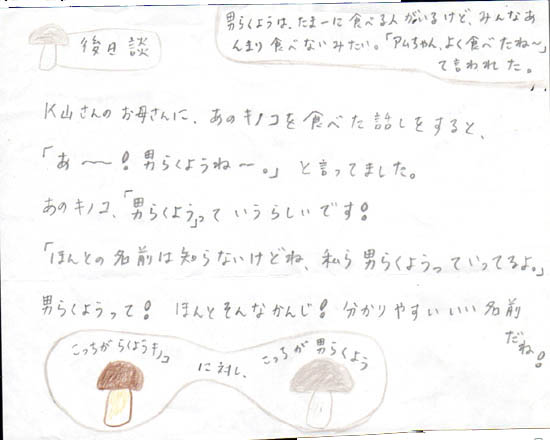 後日談
男らくようは、たまーに食べる人がいるけど、みんなあ
んまり食べないみたい。「アムちゃん、よく食べたね～」
て言われた。
K山さんのお母さんに、あのキノコを食べた話しをすると、
「あ～～！男らくようね～。」と言ってました。
あのキノコ、「男らくよう」っていうらしいです！
「ほんとの名前は知らないけどね、私ら男らくようっていってるよ。」
男らくようって！ほんとそんなかんじ！分かりやすいいい名前
だね！
こっちがらくようキノコ
に対し、
こっちが男らくよう